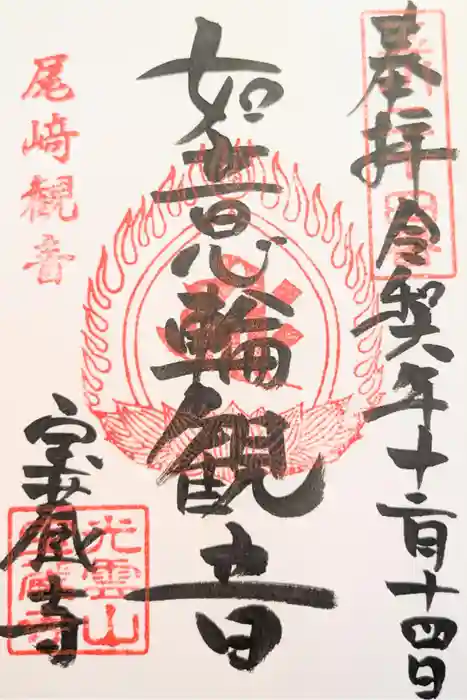 奉拝 令和契年十二月十四日
如意輪観音
尾崎観音
宝蔵寺
光雲山
宝蔵寺